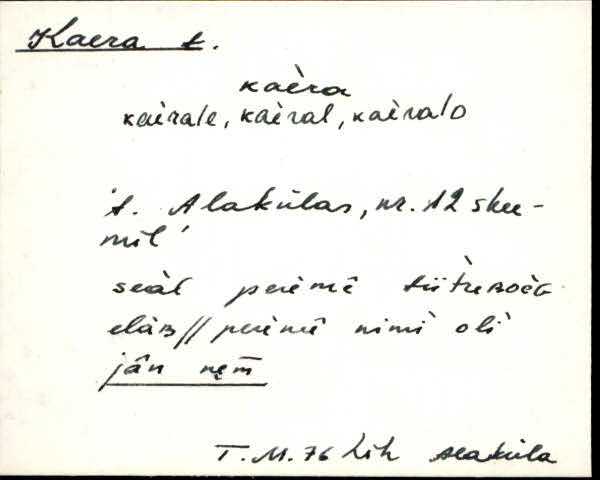 Kaera t.
kaèra
kaèrale, kaèral, kaèralo
't. Alakülas, nr. 12 skee-
mil'
seàl perèmè tiìtreʙoèɢ
elàʙ// perèmè nimì olì
jân nem̄
T. M. 76 Lih Alaküla